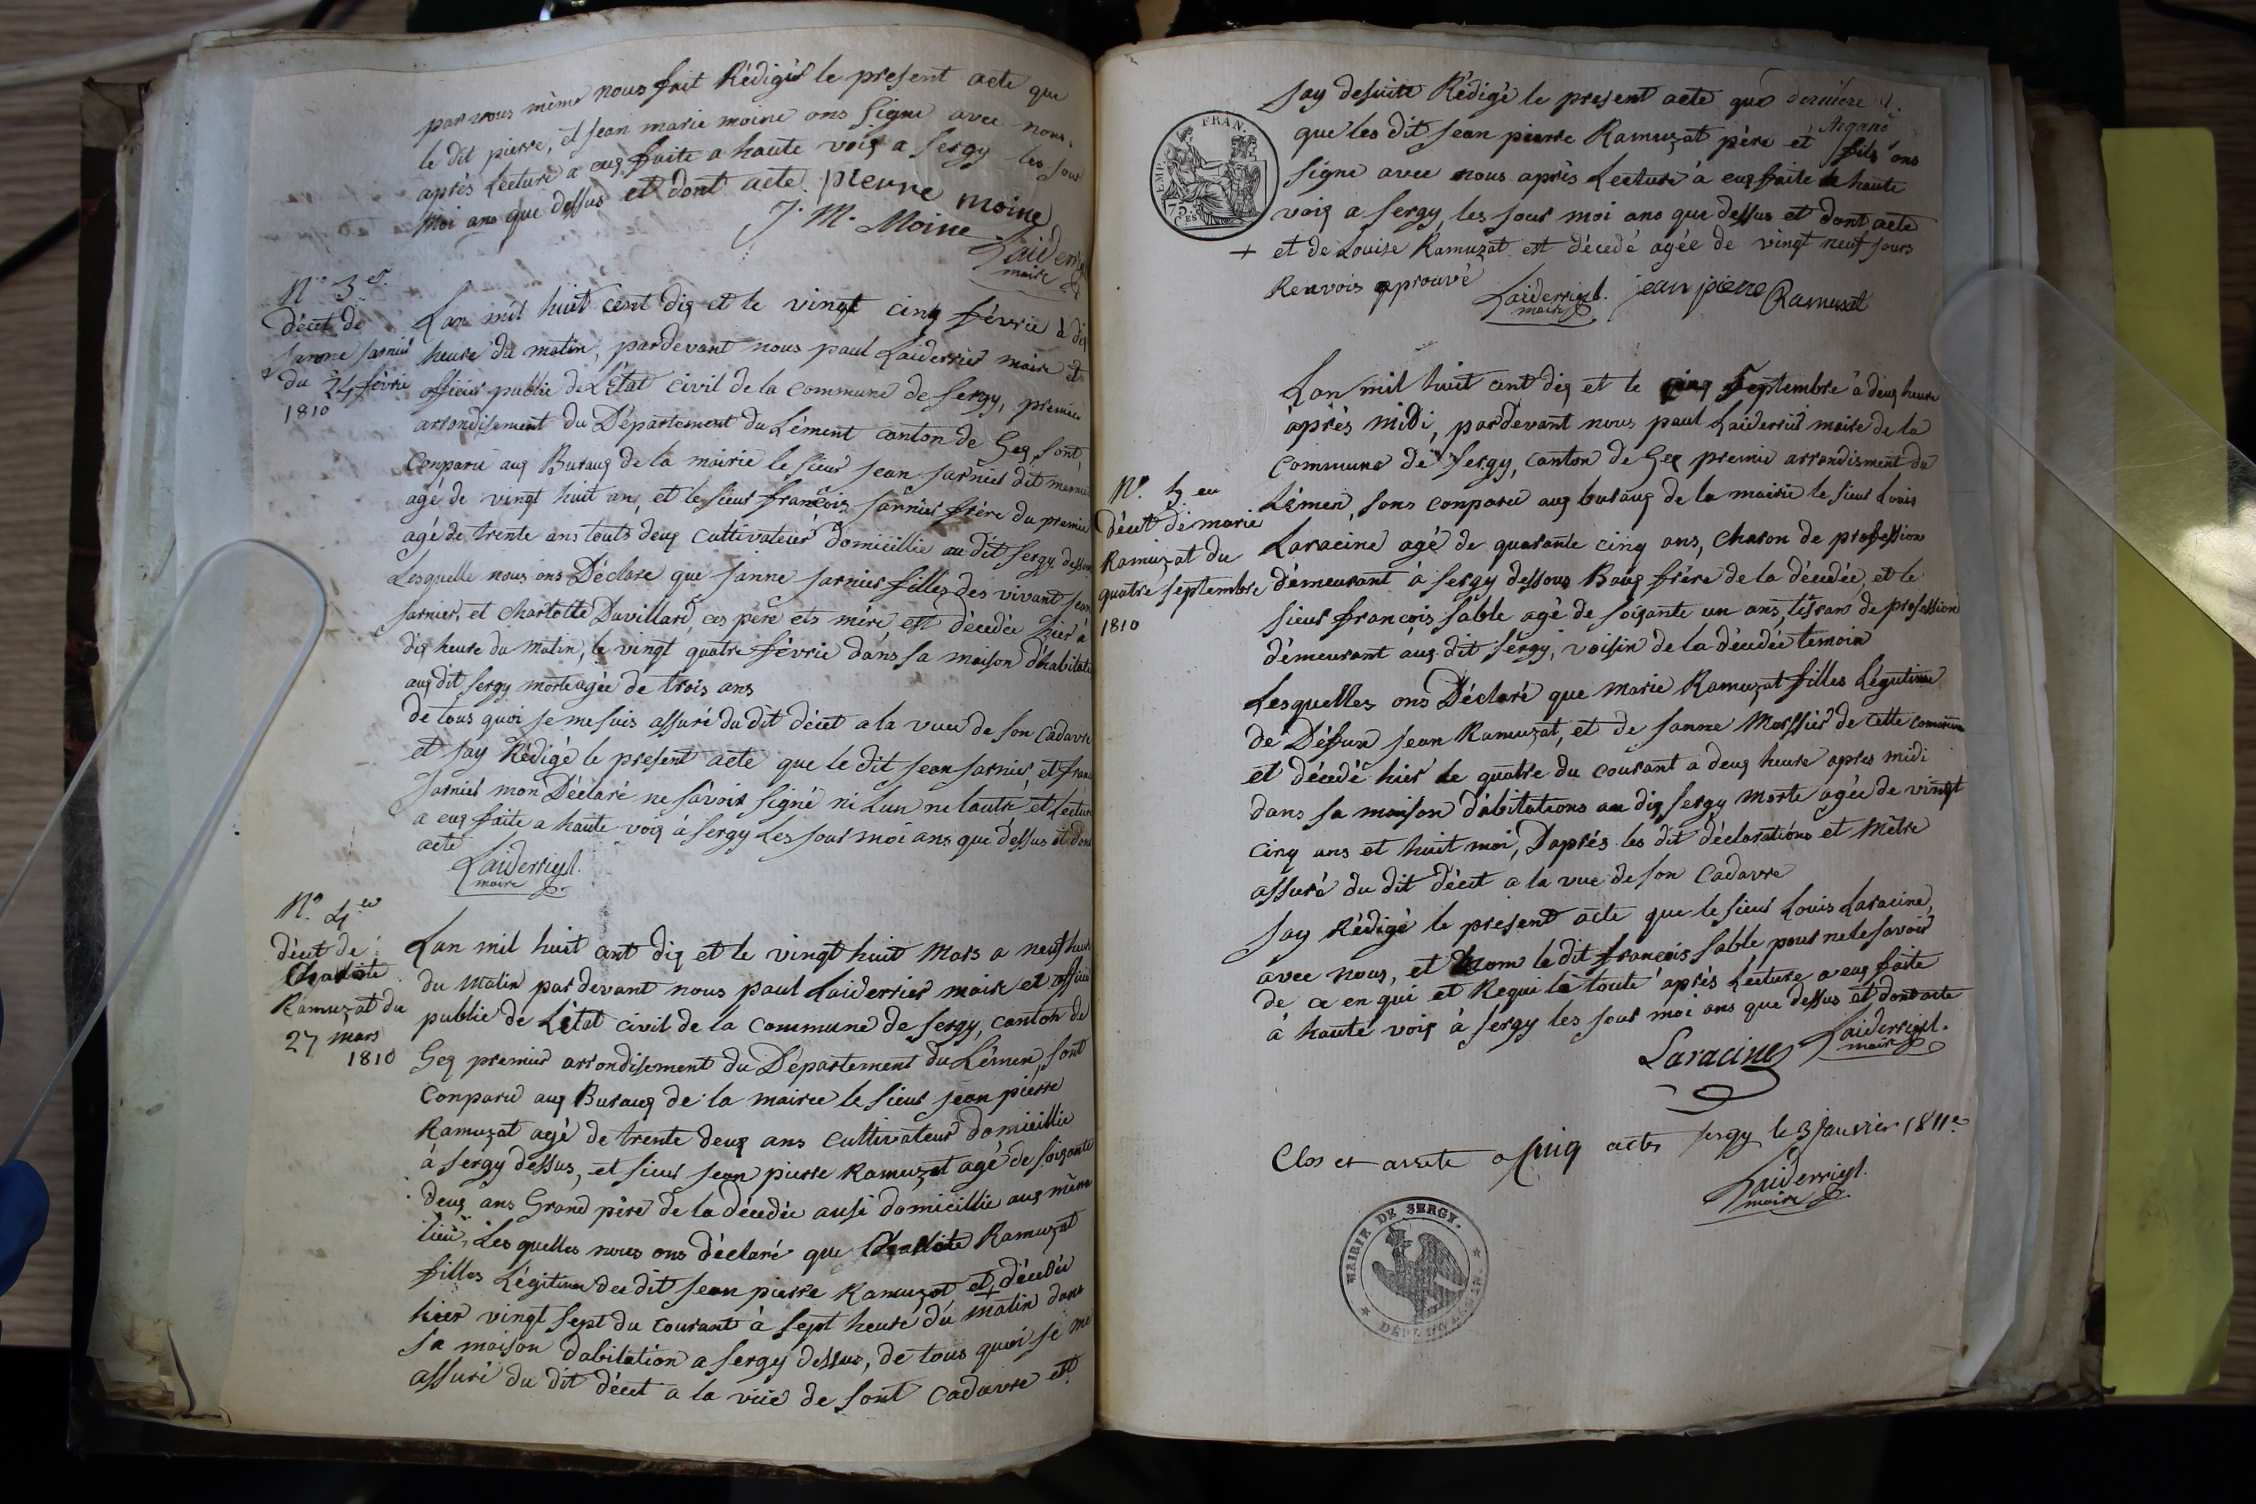 par nous même nous fait Rédigér le present acte que
le dit pierre, et Jean marie moine ons Signe avec nous.
après Lecture a eux faite a haute voix a Sergy les jour
Moi ans que dessus et dont acte. pierre moine
J. M. Moine
Laiderrier
maire
N.º 3.e
Décet de
Janne Jarnier
du 24 févrie
1810
Lan mil huit cent dix et le vingt cinq févrie à dix
heure du matin, pardevant nous paul Laiderrier maire et
officier public de L'État civil de la commune de Sergy, premier
arrondisement du Département du Lément canton de Gex, sont
Conparu aux Buraux de la mairie le sieur Jean Jarnier dit
agé de vingt huit ans, et le sieur françois Jarnier frère du premier
agé de trente ans touts deux cultivateur domicillie au dit Sergy dessous
Lesquelle nous ons Déclare que Janne Jarnier filles des vivant Jean
Jarnier, et Charlotte Duvillard, ces père ets mère est décedée hier à
dix heure du Matin, le vingt quatre févrie dans sa maison d'habitation
aux dit Sergy morte agée de trois ans
de tous quoi je me suis assuré du dit décet a la vue de son Cadavre
et jay Rédigé le present acte que le dit Jean Jarnier et
Jarnier mon Déclaré ne savoir signé ni Lun ne lautre et Lecture
a eux faite a haute voix à Sergy Les jour moi ans que dessus et dont
acte
Laiderrier
maire
N.º 4.
décet de
Charlotte
Ramuzat du
27 mars
1810
Lan mil huit cent dix et le vingt huit Mars a neuf heure
du Matin par devant nous paul Laiderrier maire et officier
public de L'état civil de la commune de Sergy, canton de
Gex premier arrondisement du Département du Lémen, sont
Conparu aux Buraux de la mairie le sieur Jean pierre
Ramuzat agé de trente deux ans cultivateur domicillie
à Sergy dessus, et sieur Jean pierre Ramuzat agé de soixante
deux ans Grand père de la décedée ausi domicillie aux même
lieu, Les quelles nous ons déclaré que Charlotte Ramuzat
filles Légitime du dit Jean pierre Ramuzat et + décedée
hier vingt sept du courant à sept heure du matin dans
sa maison d'abitation a Sergy dessus, de tous quoi je me
assuré du dit décet a la vüe de sont Cadavre et
jay desuite Rédigé le present acte que
que les dit Jean pierre Ramuzat père et fils ons
signe avec nous après Lecture à eux faite a haute
voix a Sergy, les jour moi ans que dessus et dont acte
+ et de Louise Ramuzat est décedé agée de vingt neuf jours
Renvois aprouvé
Laiderrier
maire
jean piere Ramusat
FRAN.
EMP.
75 CES
N.º 5.eu
Décet de marie
Ramuzat du
quatre septembre
1810
Lan mil huit cent dix et le cinq Septembre à deux heure
après midi, pardevant nous paul Laiderrier maire de la
commune de Sergy, canton de Gex premier arrondisment du
Lémen, sons conparu aux buraux de la mairie le sieur Louis
Laracine agé de quarante cinq ans, charon de profession
démeurant à Sergy dessous Baux frère de la décedée, et le
sieur françois Sable agé de soixante un ans, tisran de profession
démeurant aux dit Sergy, voisin de la décedée temoin
Lesquelles ons Déclaré que Marie Ramuzat filles Légitime
de Défun Jean Ramuzat, et de Janne Morssier de cette commune
et décedé hier le quatre du courant a deux heure apres midi
dans sa maison d'abitations au dix Sergy Morte agée de vingt
cinq ans et huit moi, Daprés les dit déclarations et Mètre
assuré du dit décet a la vue de son Cadavre
Jay Rédigé le present acte que le sieur Louis Laracine,
avec nous, et nom le dit françois Sable pour ne le savoir
de ce en qui et Requi le toute après Lecture a eux faite
à haute voix à Sergy les jour moi ans que dessus et dont acte
Laracine
Laiderrier
maire
Clos et arrete a Cinq actes Sergy le 3 janvier 1811
Laiderrier
maire
MAIRIE DE SERGY.